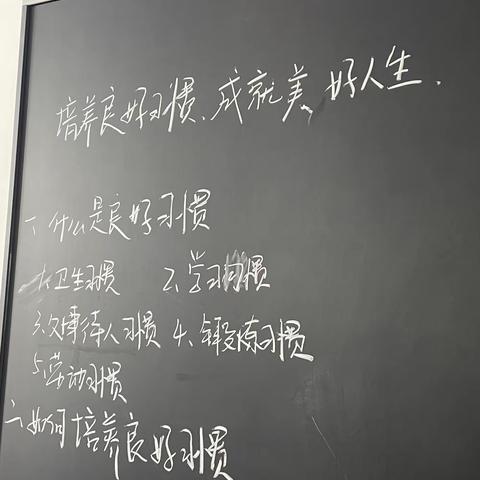 培养良好习惯、成就美好人生.
一、什么是良好习惯
1、卫生习惯 2、学习习惯
3、文博待人习惯 4、锻炼习惯
5、劳动习惯
二、如何培养良好习惯